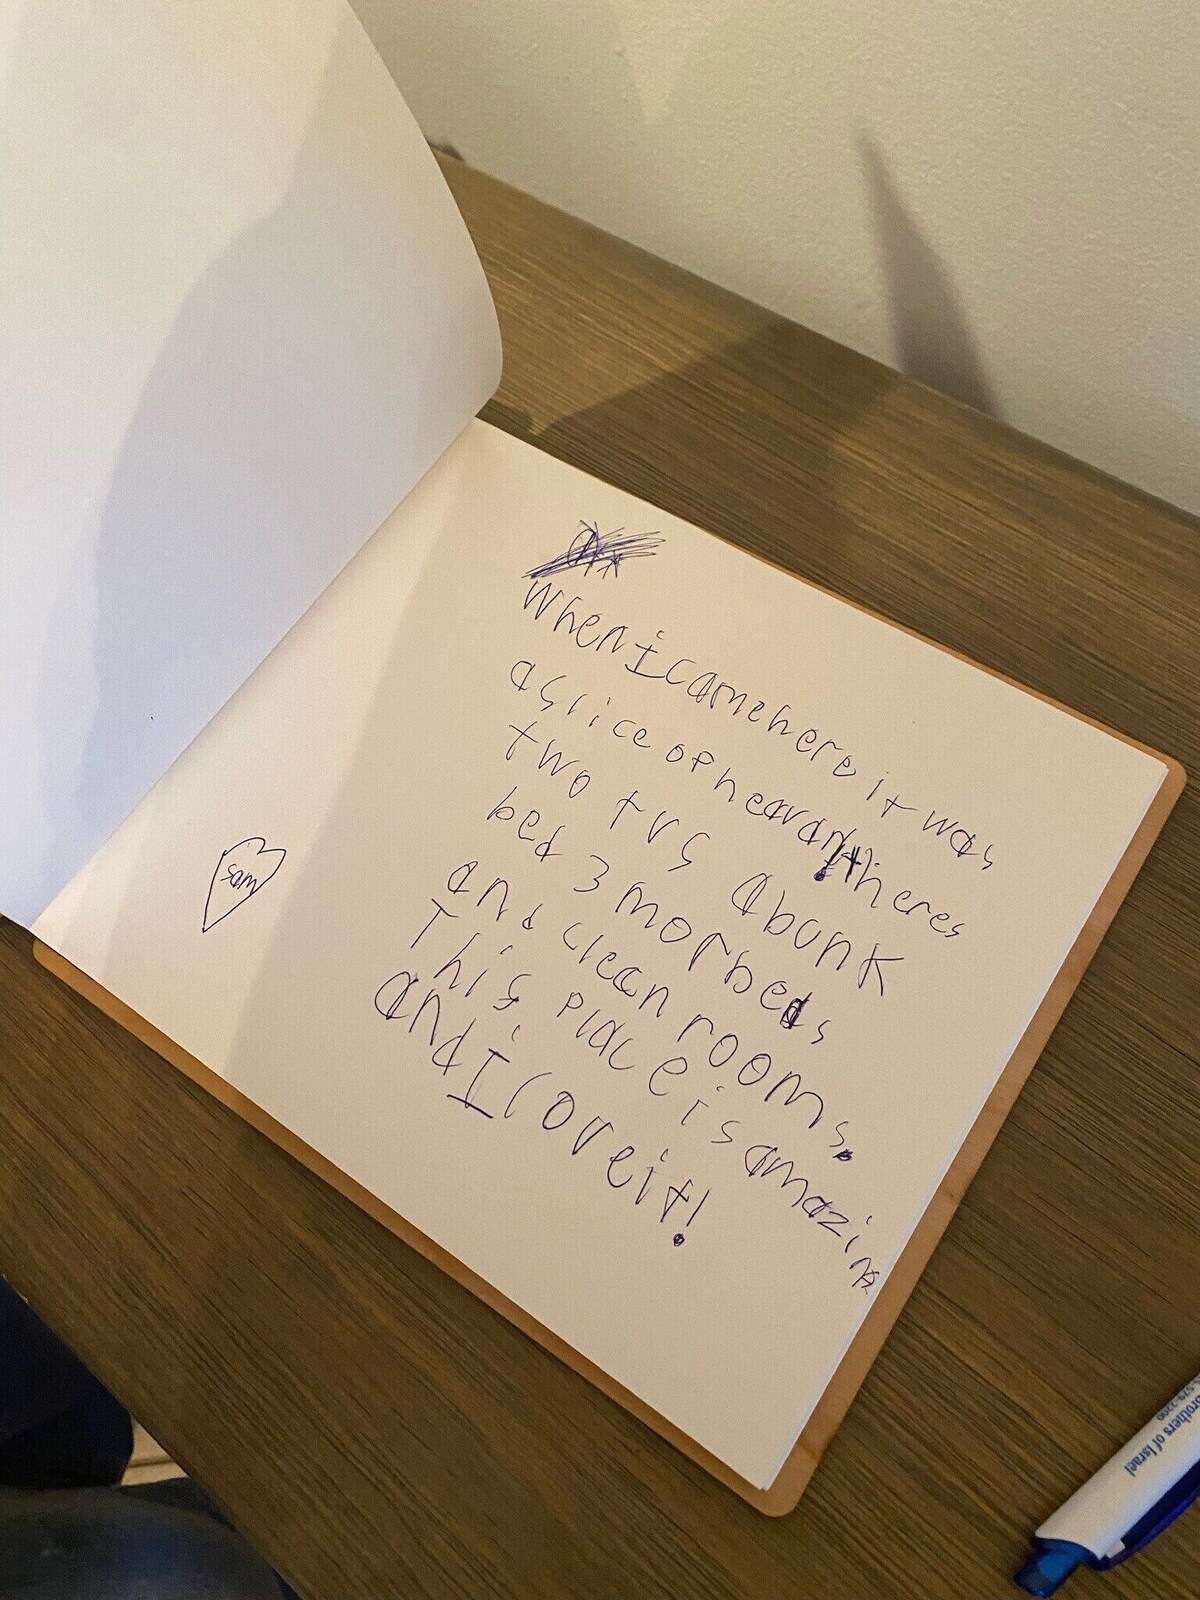 When I came here it was
a slice of heavan! theres
two tvs a bunk
bed 3 mor beds
and clean rooms.
This place is amazing
and I love it!
was
Brothers of Israel